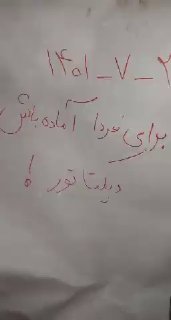 ۱۴۰۱-۷-۲
برای فردا آماده باش
دیکتاتور!